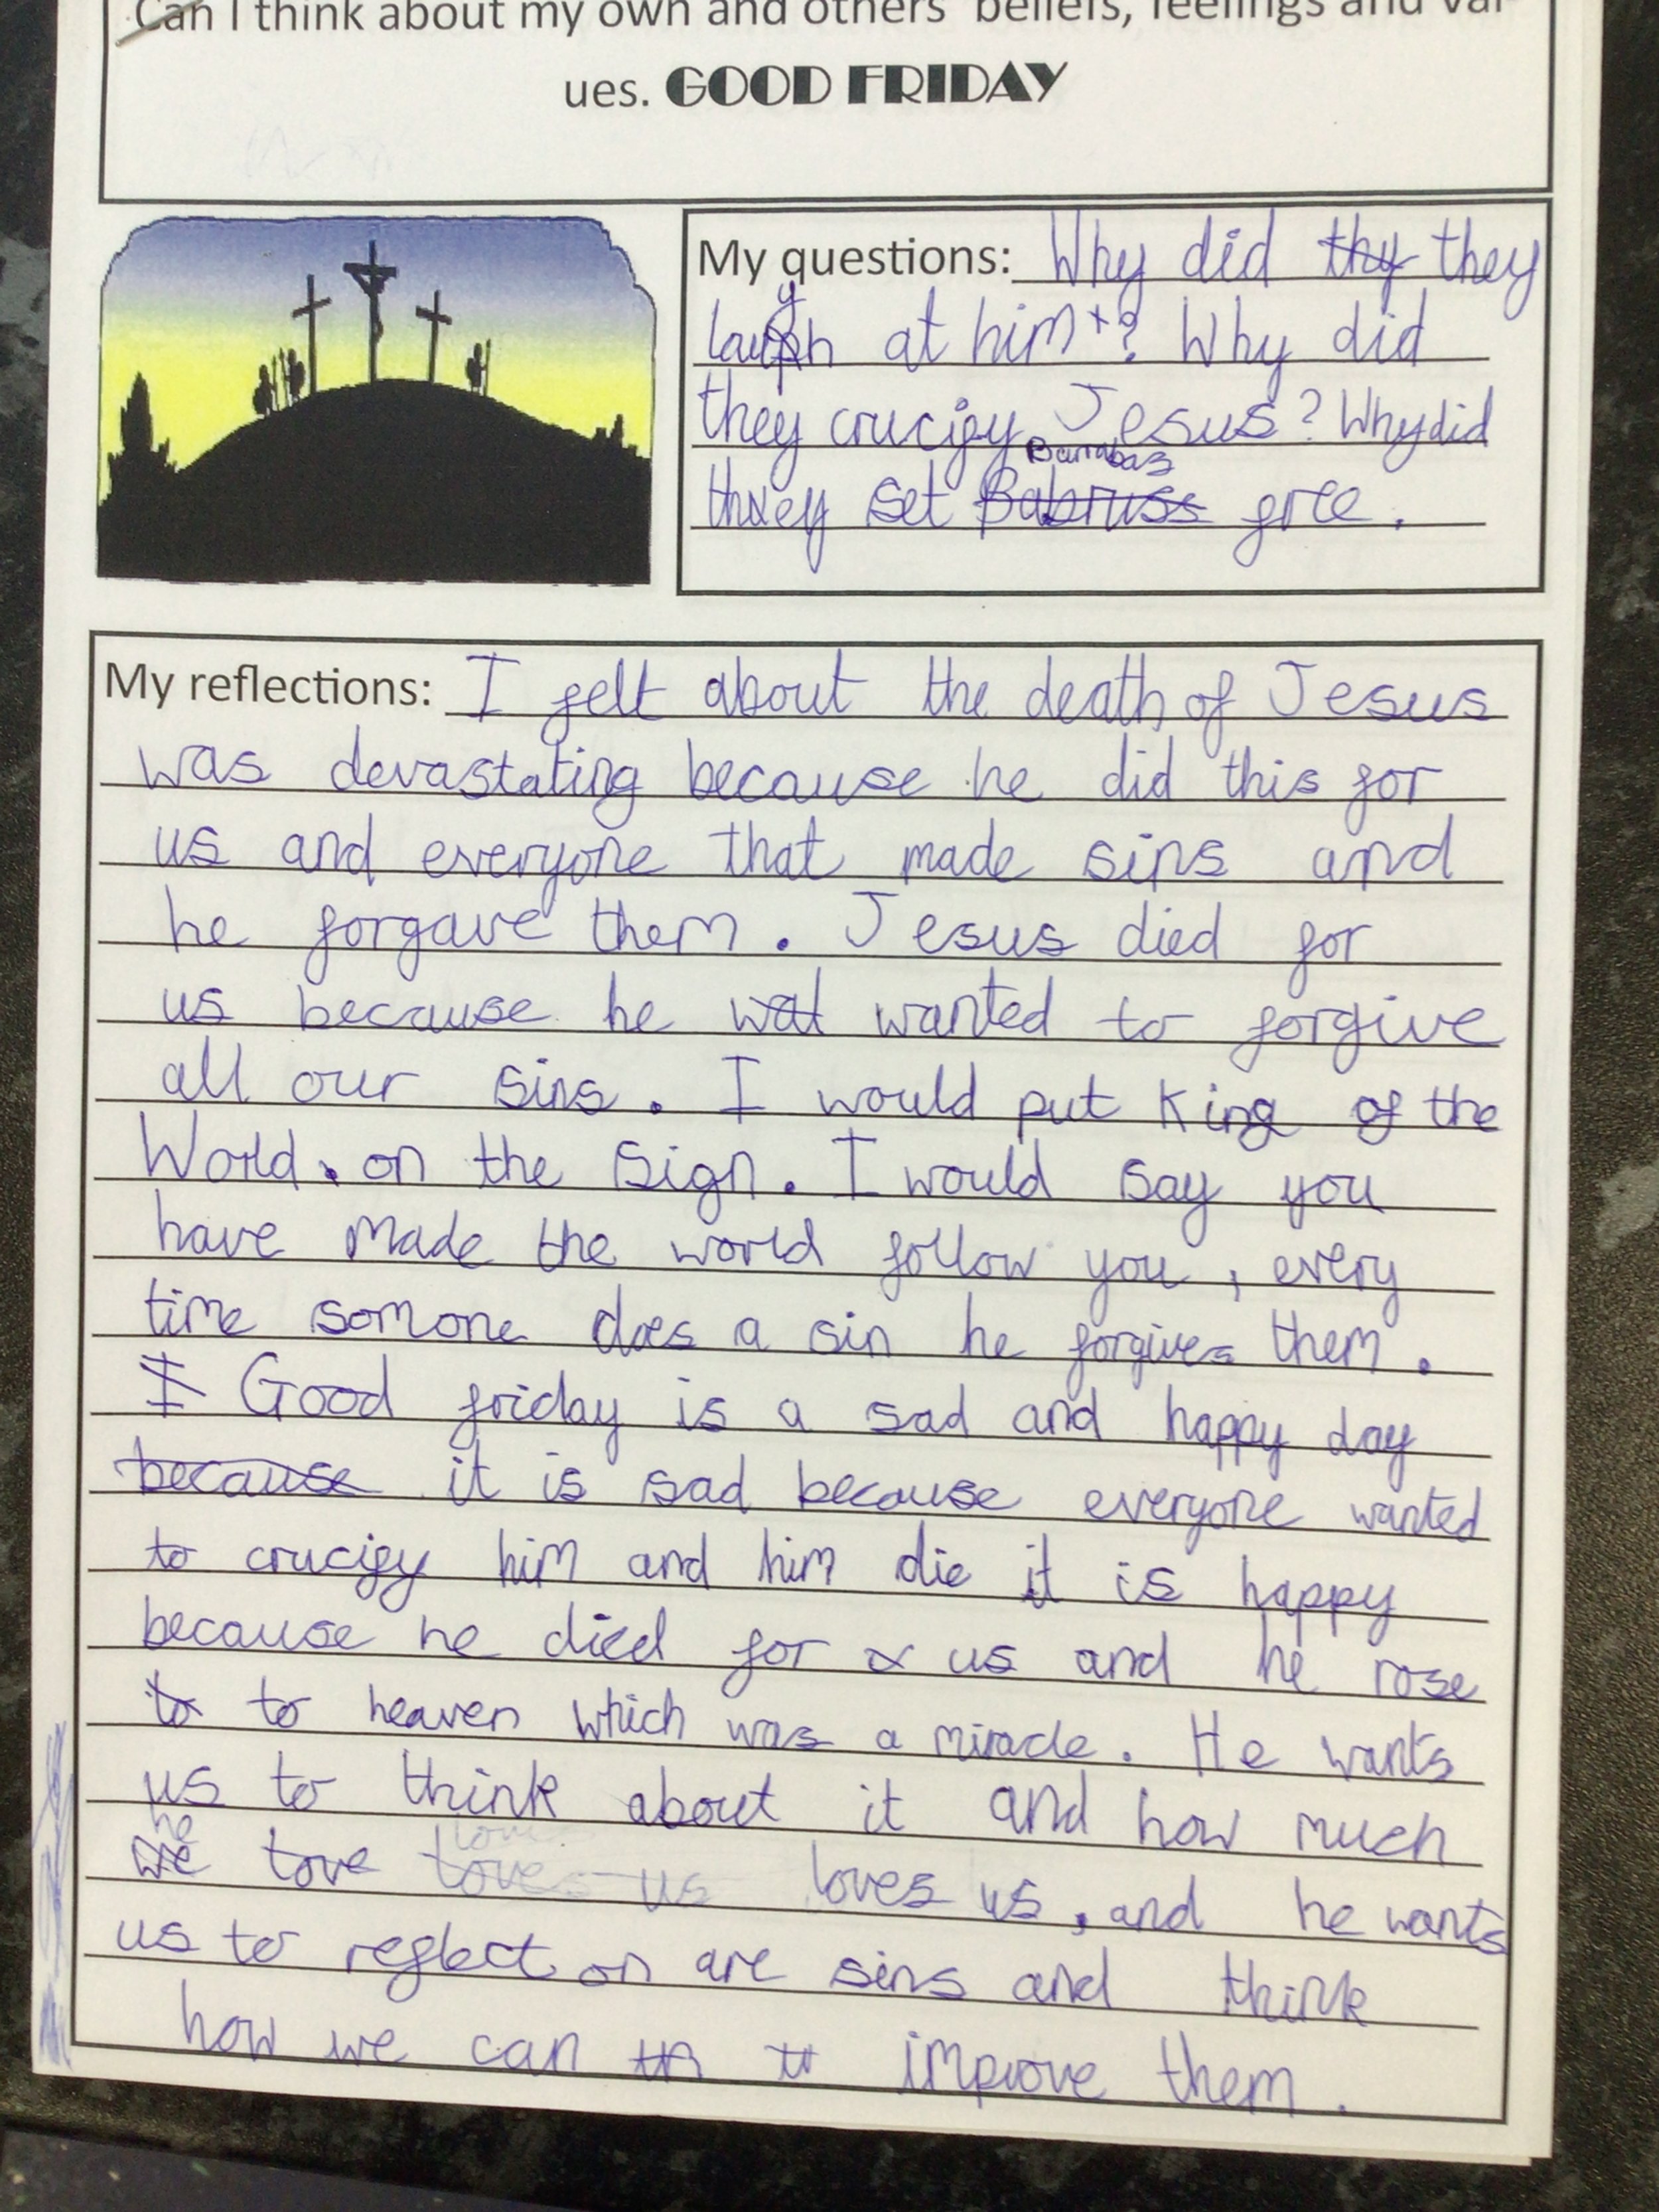 Can I think about my own and others' beliefs, feelings and val-
ues. GOOD FRIDAY
My questions: Why did thy they
laugh at him? Why did
they crucify Jesus? Why did
Barrabas
they set Babruss free.
My reflections: I felt about the death of Jesus
was devastating because he did this for
us and everyone that made sins and
he forgave them. Jesus died for
us because he wat wanted to forgive
all our sins. I would put King of the
World. on the sign. I would say you
have made the world follow you, every
time somone does a sin he forgives them.
I Good friday is a sad and happy day
because it is sad because everyone wanted
to crucify him and him die it is happy
because he died for us and he rose
to to heaven which was a miracle. He wants
us to think about it and how much
he
we love loves us loves us, and he wants
us to reflect on are sins and think
how we can improve them.